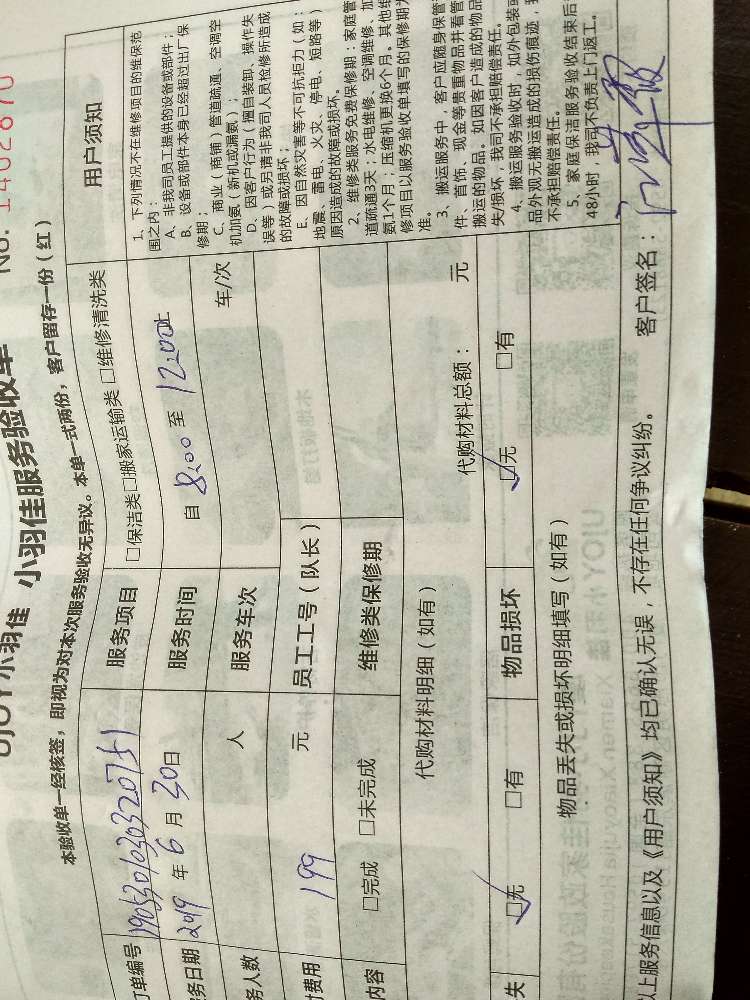 UJOY小羽佳 小羽佳服务验收单 No. 1402870
本验收单一经核签，即视为对本次服务验收无异议。本单一式两份，客户留存一份（红）
订单编号 服务项目 □保洁类□搬家运输类 □维修清洗类
务日期 2019 年 6 月 30 日 服务时间 自 8:00 至 12:00止
务人数 人 服务车次 车/次
付费用 199 元 员工工号（队长）
内容 □完成 □未完成 维修类保修期
代购材料明细（如有） 代购材料总额： 元
失 ☑无 □有 物品损坏 ☑无 □有
物品丢失或损坏明细填写（如有）
用户须知
1、下列情况不在维修项目的维保范
围之内：
A、非我司员工提供的设备或部件；
B、设备或部件本身已经超过出厂保
修期；
C、商业（商铺）管道疏通、空调空
机加氨（新机或漏氨）；
D、因客户行为（擅自装卸、操作失
误等）或另请非我司人员检修所造成
的故障或损坏；
E、因自然灾害等不可抗拒力（如：
地震、雷电、火灾、停电、短路等）
原因造成的故障或损坏。
2、维修类服务免费保修期：家庭管
道疏通3天；水电维修、空调维修、加
氨1个月；压缩机更换6个月。其他维
修项目以服务验收单填写的保修期为
准。
3、搬运服务中，客户应随身保管
件、首饰、现金等贵重物品并看管
搬运的物品。如因客户造成的物品
失/损坏，我司不承担赔偿责任。
4、搬运服务验收时，如外包装或
品外观无搬运造成的损伤痕迹，我
不承担赔偿责任。
5、家庭保洁服务验收结束后
48小时，我司不负责上门返工。
以上服务信息以及《用户须知》均已确认无误，不存在任何争议纠纷。 客户签名：